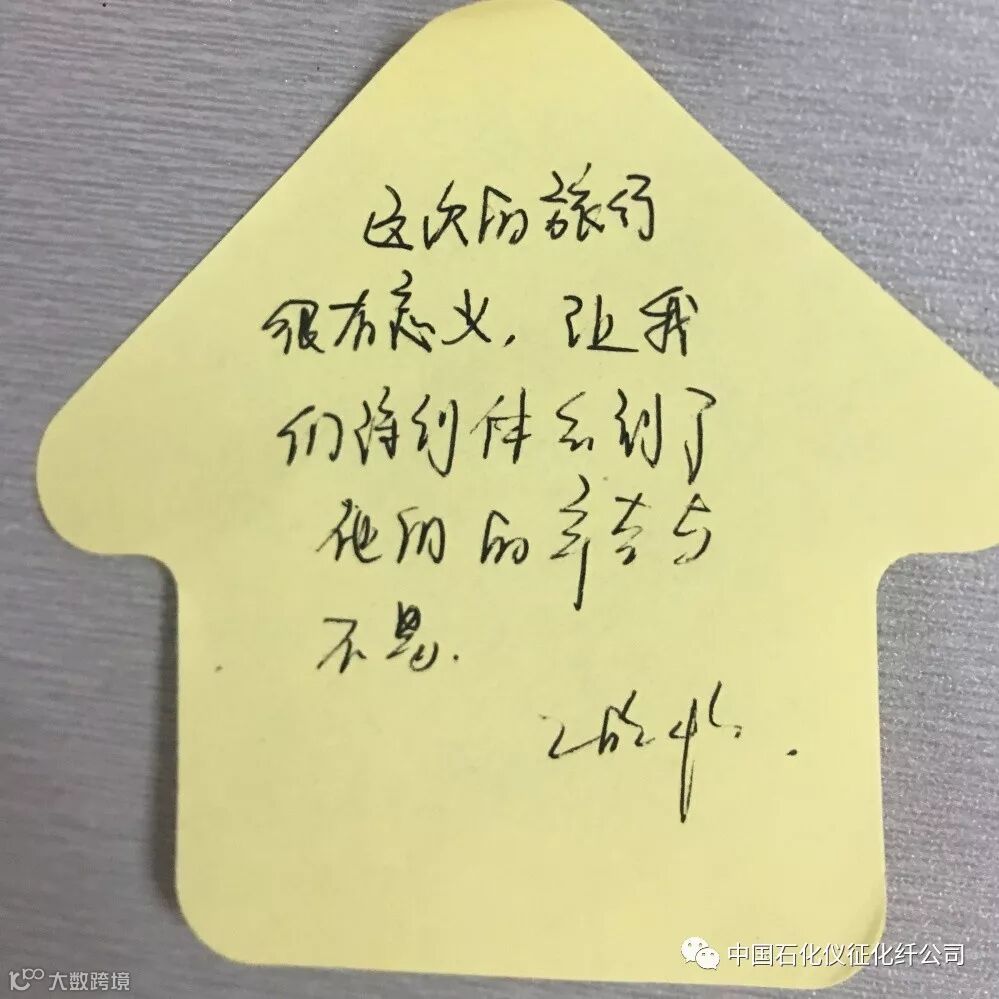 这次的旅行
很有意义，让我
们得到体会到了
他们的辛苦与
不易.
中国石化仪征化纤公司
大数跨境